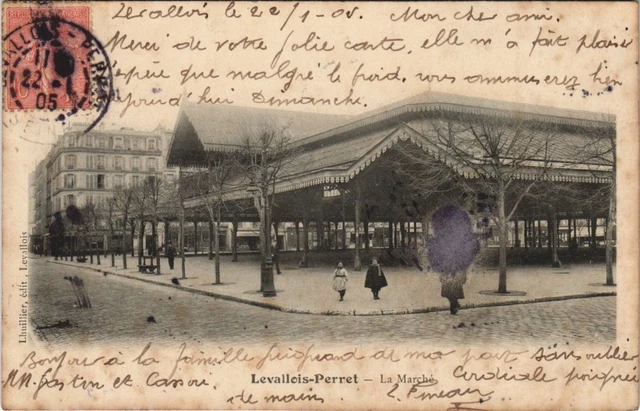 Levallois le 22/1-05. Mon cher ami.
Merci de votre jolie carte, elle m'a fait plaisir
J'espère que malgré le froid, vous ammuserez bien
aujourd'hui Dimanche.
LEVALLOIS-PERRET
11
22 -1
05
Lhuillier, édit, Levallois
Bonjour à la famille de ma part sans oublier
MM. Gastin et
Levallois-Perret - La Marché
Cordiale poignée
de mains.